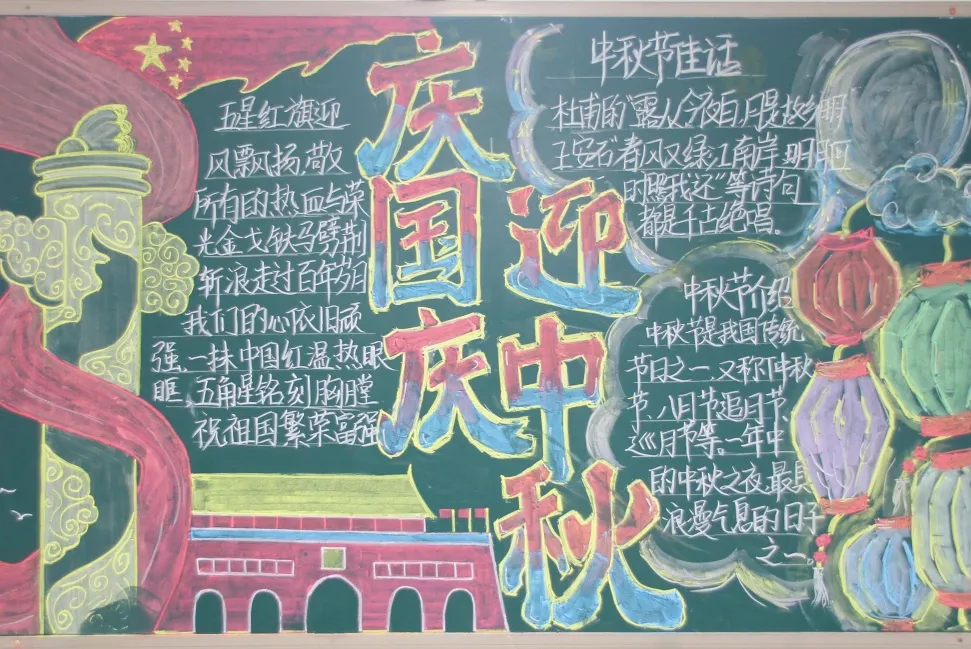 庆国庆
迎中秋
五星红旗迎
风飘扬.敬
所有的热血与荣
光金戈铁马劈荆
斩浪走过百年岁月
我们的心依旧顽
强.一抹中国红温热眼
眶.五角星铭刻胸膛
祝祖国繁荣富强
中秋节佳话
杜甫的"露从今夜白,月是故乡明
王安石"春风又绿江南岸.明月
时照我还"等诗句
都是千古绝唱。
中秋节介绍
中秋节是我国传统
节日之一.又称中秋
节、八月节追月节
巡月节等。一年中
的中秋之夜.最具
浪漫气息的日子
之一。